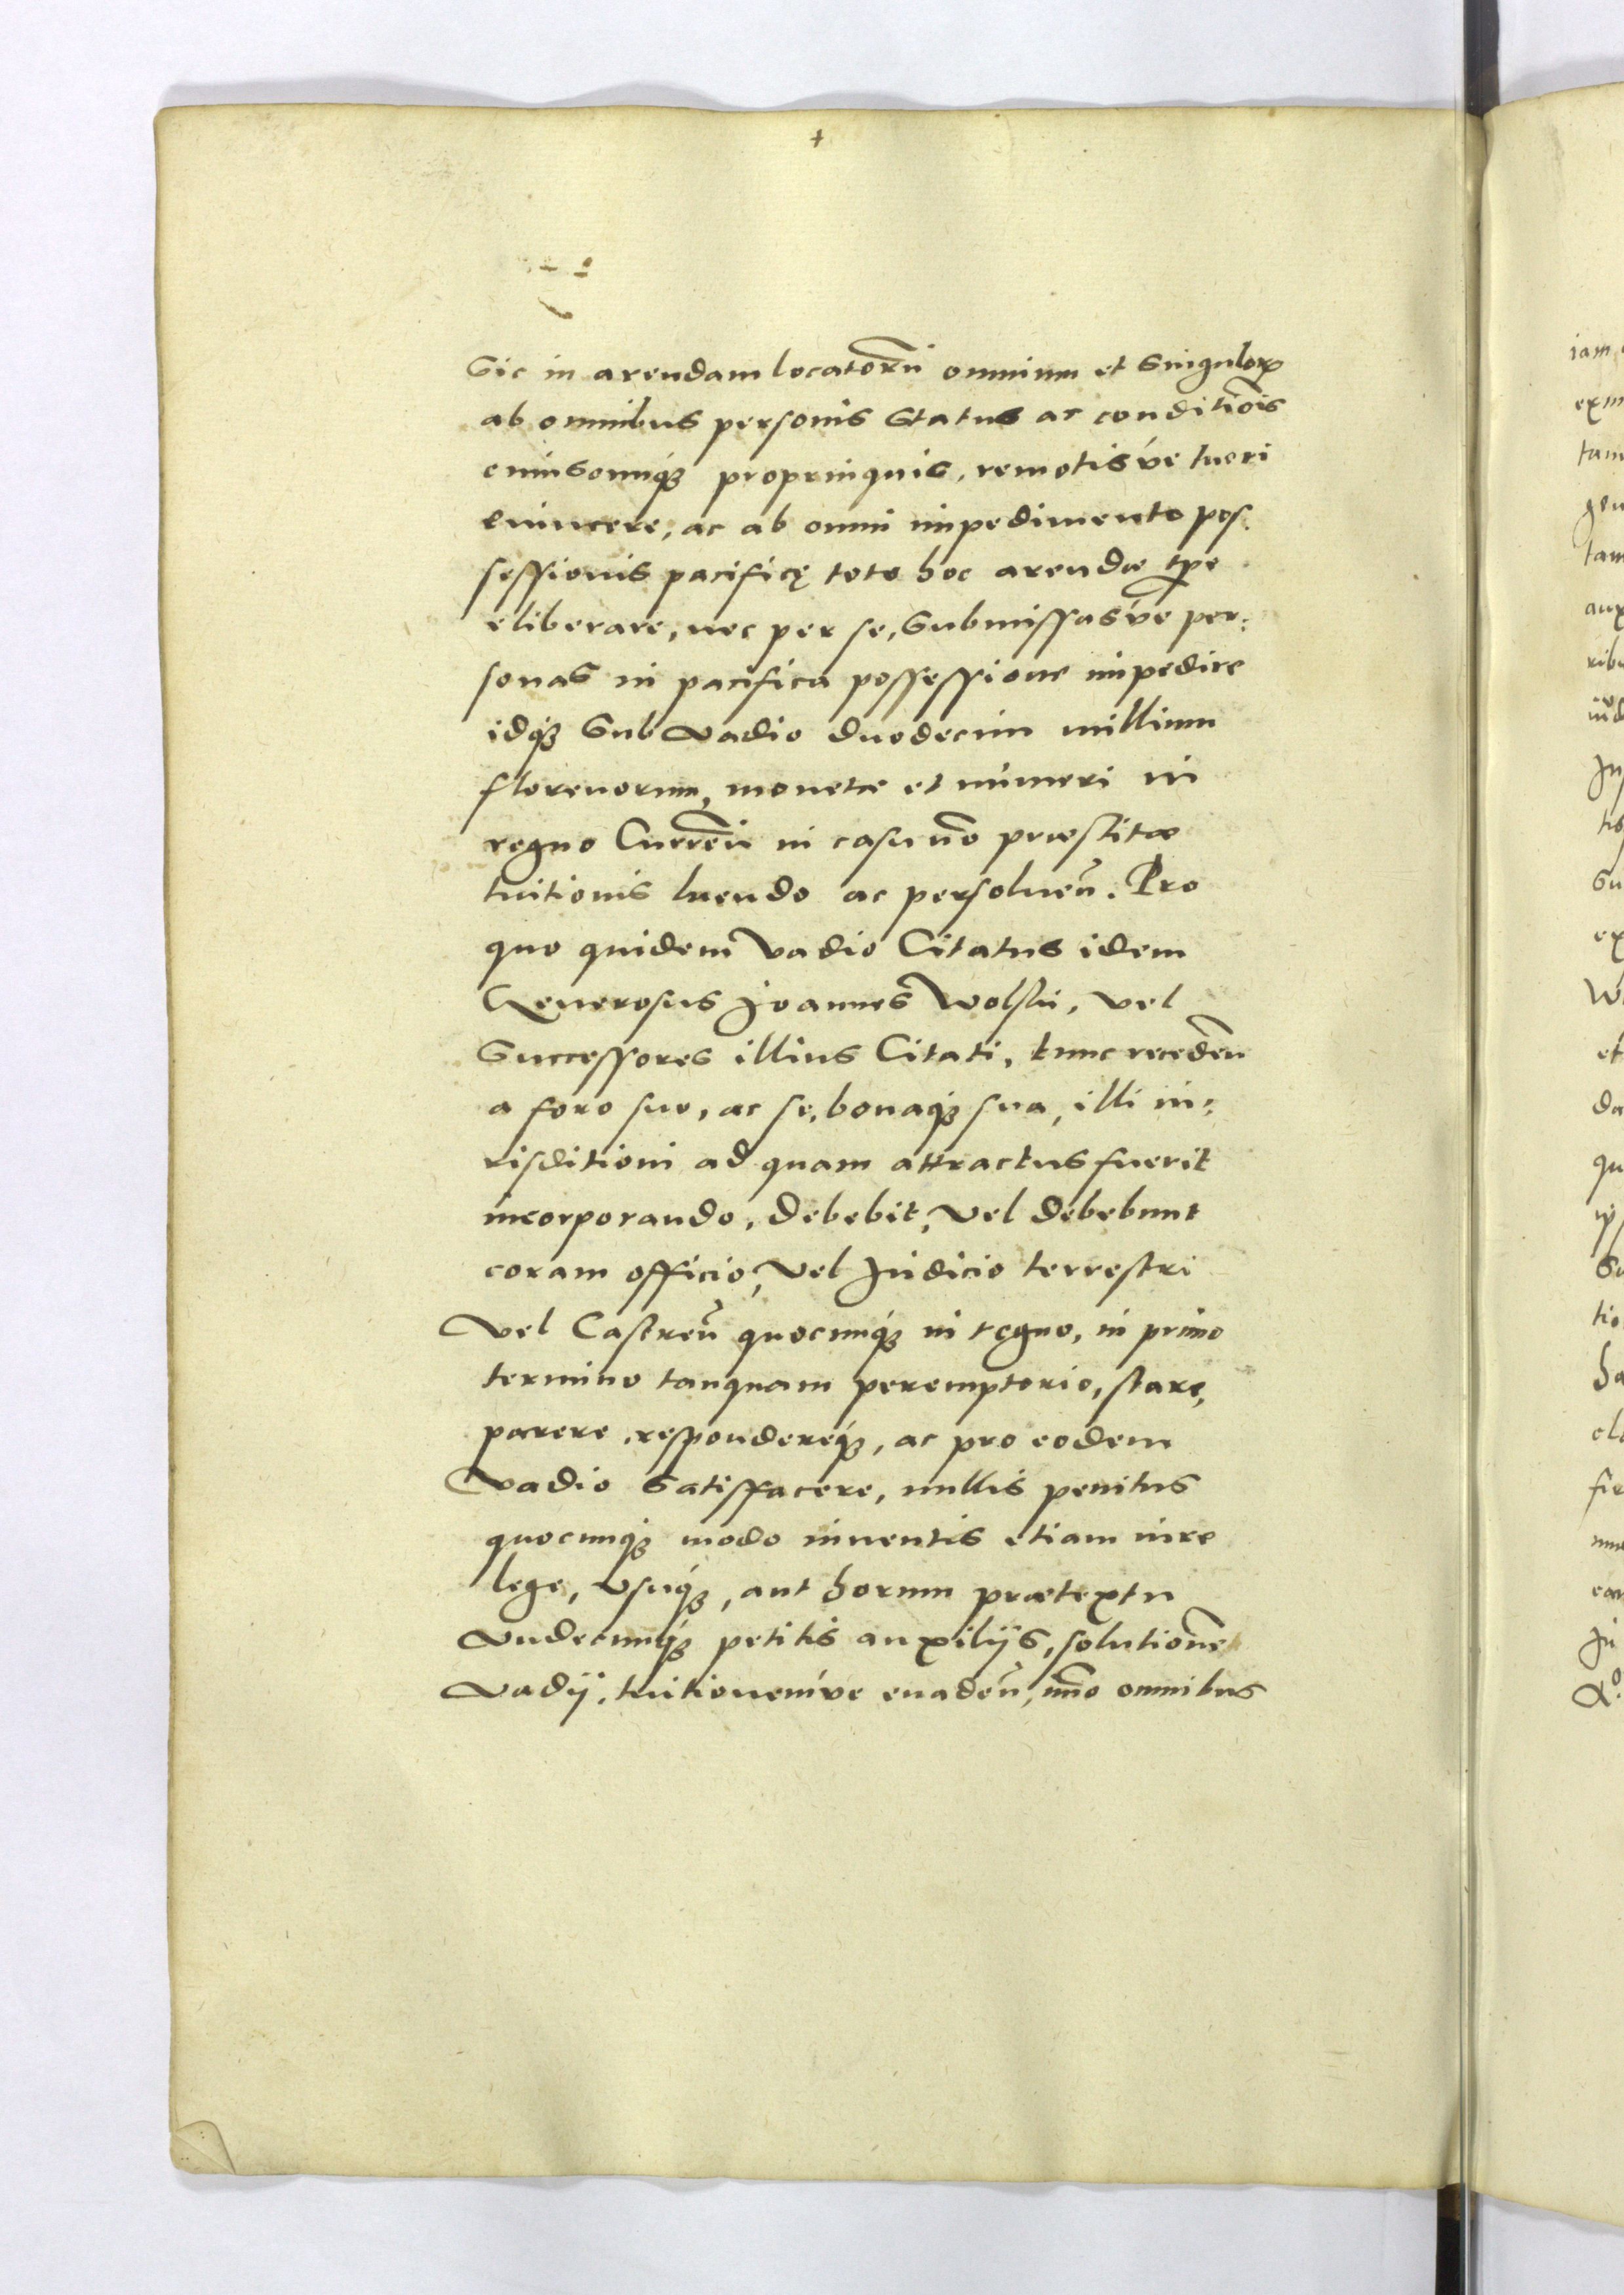 Sic in arendam locatorũ omnium et Singulorꝝ
ab omnibus personis Status ac conditiõis
cuiuscunqꝫ propinquis, remotisúe tueri
euincere, ac ab omni impedimento pos.
sessionis pacificę toto hoc arendæ tp̃e
eliberare, nec per se, Submissasúe per:
sonas in pacifica possessione impedire
idqꝫ Sub vadio duodecim millium
florenorum, monetæ et numeri in
regno Curreñ in casu nõ præstitæ
tuitionis luendo ac persolueñ. Pro
quo quidem vadio Citatus idem
Generosus Joannes Wolski, vel
Successores illius Citati, tunc recedeñ
a foro suo, ac se, bonaqꝫ sua, illi iu:
risditioni ad quam attractus fuerit
incorporando, debebit, vel debebunt
coram officio, vel Judicio terrestri
vel Castreñ quocunqꝫ in regno, in primo
termino tanquam peremptorio, stare,
parere, respondereqꝫ, ac pro eodem
vadio Satisfacere, nullis penitus
quocunqꝫ modo inuentis etiam iure
lege, vsuqꝫ, aut horum prætextu
vndecunqꝫ petitis auxilijs, solutionẽ
vadij, tuitionemúe euadeñ, im̃o omnibus